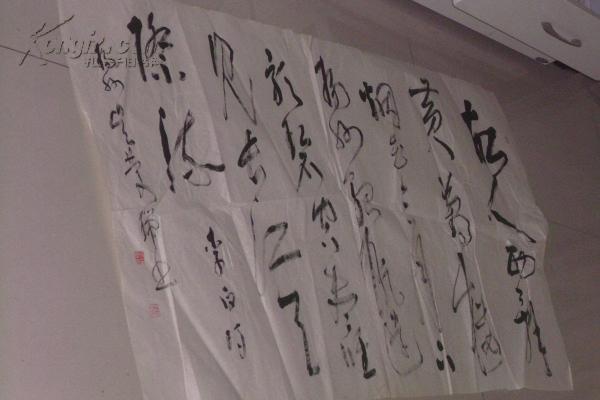 故人西辞
黄鹤楼
烟花三月下
扬州孤帆远
影碧空尽唯
见长江天
际流
李白诗
孔夫子旧书网